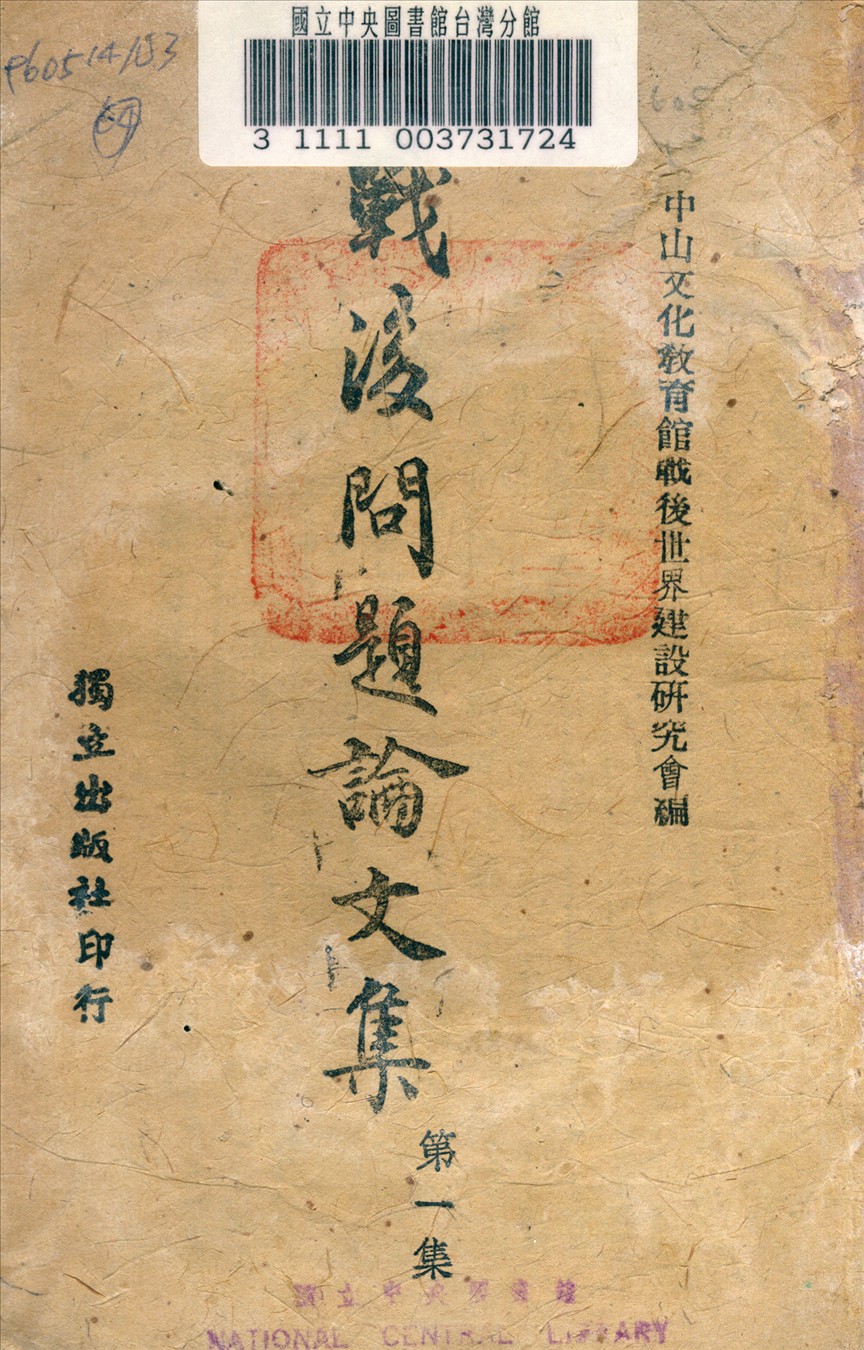 國立中央圖書館台灣分館
3 1111 003731724
中山文化教育館戰後世界建設研究會編
戰後問題論文集
第一集
獨立出版社印行
國立中央圖書館
NATIONAL CENTRAL LIBRARY